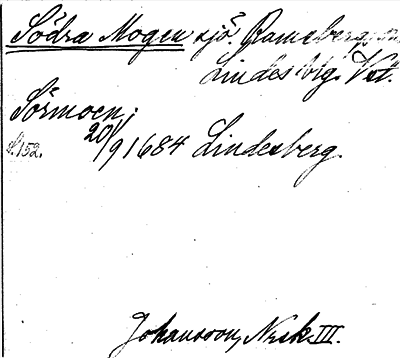 Södra Mogen sjö. Ramsberg, sn
Lindesbg. Vst.
Sörmoen;
S. 152.
20/9 1684 Lindesberg.
Johansson, Nrik. III.